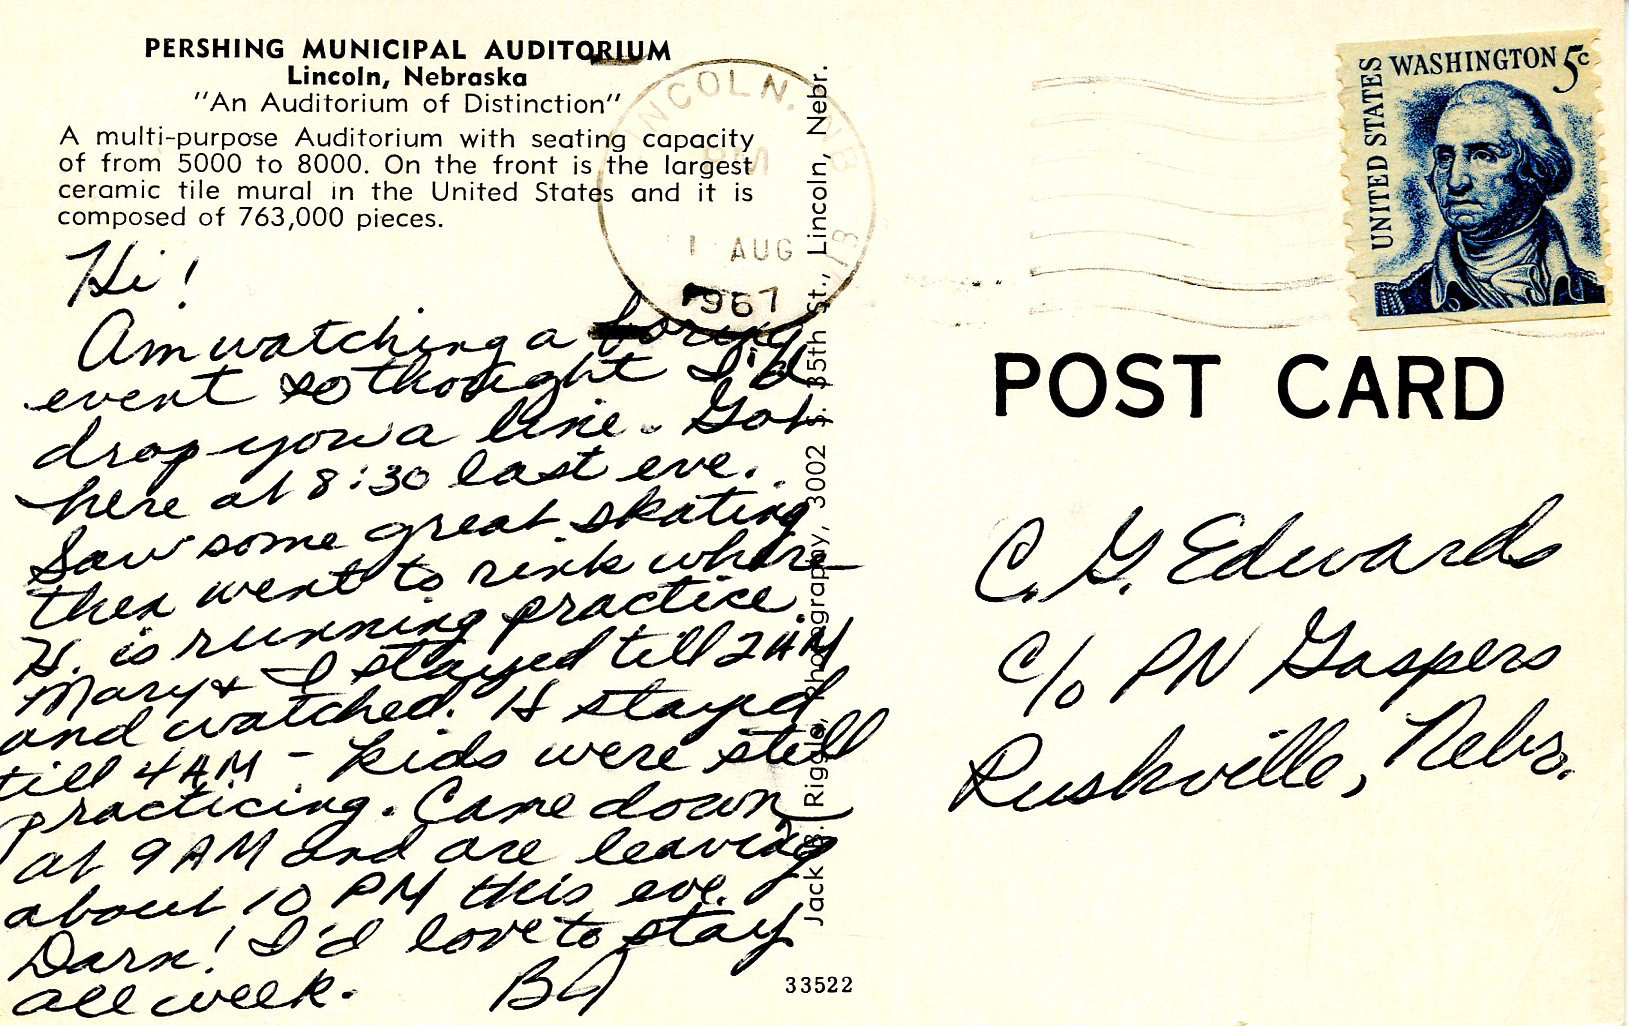 PERSHING MUNICIPAL AUDITORIUM
Lincoln, Nebraska
"An Auditorium of Distinction"
A multi-purpose Auditorium with seating capacity
of from 5000 to 8000. On the front is the largest
ceramic tile mural in the United States and it is
composed of 763,000 pieces.
Hi!
Am watching a boring
event so thought I'd
drop you a line. Got
here at 8:30 last eve.
Saw some great skating
then went to rink where
H. is running practice.
Mary + I stayed till 2AM
and watched. H stayed
till 4AM - kids were still
practicing. Came down
at 9AM and are leaving
about 10 PM this eve.
Darn! I'd love to stay
all week. BJ
Jack B. Riggle, Photography, 3002 S. 35th St., Lincoln, Nebr.
33522
LINCOLN, NEB
PM
1 AUG
1967
UNITED STATES
WASHINGTON 5c
POST CARD
C. G. Edwards
c/o PN Gaspers
Rushville, Nebr.